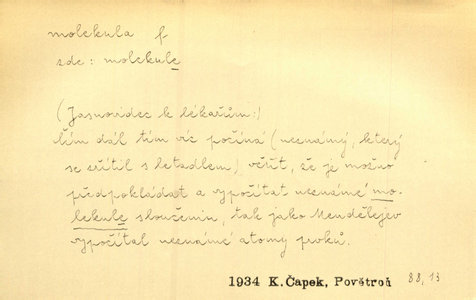 molekula f
zde: molekule
(Jasnovidec k lékařům:)
čím dál tím víc počíná (neznámý, který
se zřítil s letadlem) věřit, že je možno
předpokládat a vypočítat neznámé mo-
lekule sloučenin, tak jako Mendělejev
vypočítal neznámé atomy prvků.
1934 K.Čapek, Povětroň 88,13